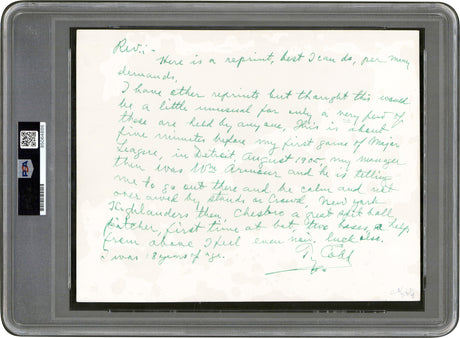 Rev:-
Here is a reprint, best I can do, per many
demands.
I have other reprints but thought this would
be a little unusual for only a very few of
these are held by anyone. This is about
five minutes before my first game of Major
League, in Detroit August 1905, my manager
then was Wm Armour and he is telling
me to go out there and be calm and not
over awed by stands or crowd, New York
Highlanders then, Chesbro a great spit ball
pitcher, first time at bat, two bases, a help
from above I feel even now, luck also.
I was 18 years of age. Ty Cobb
PSA